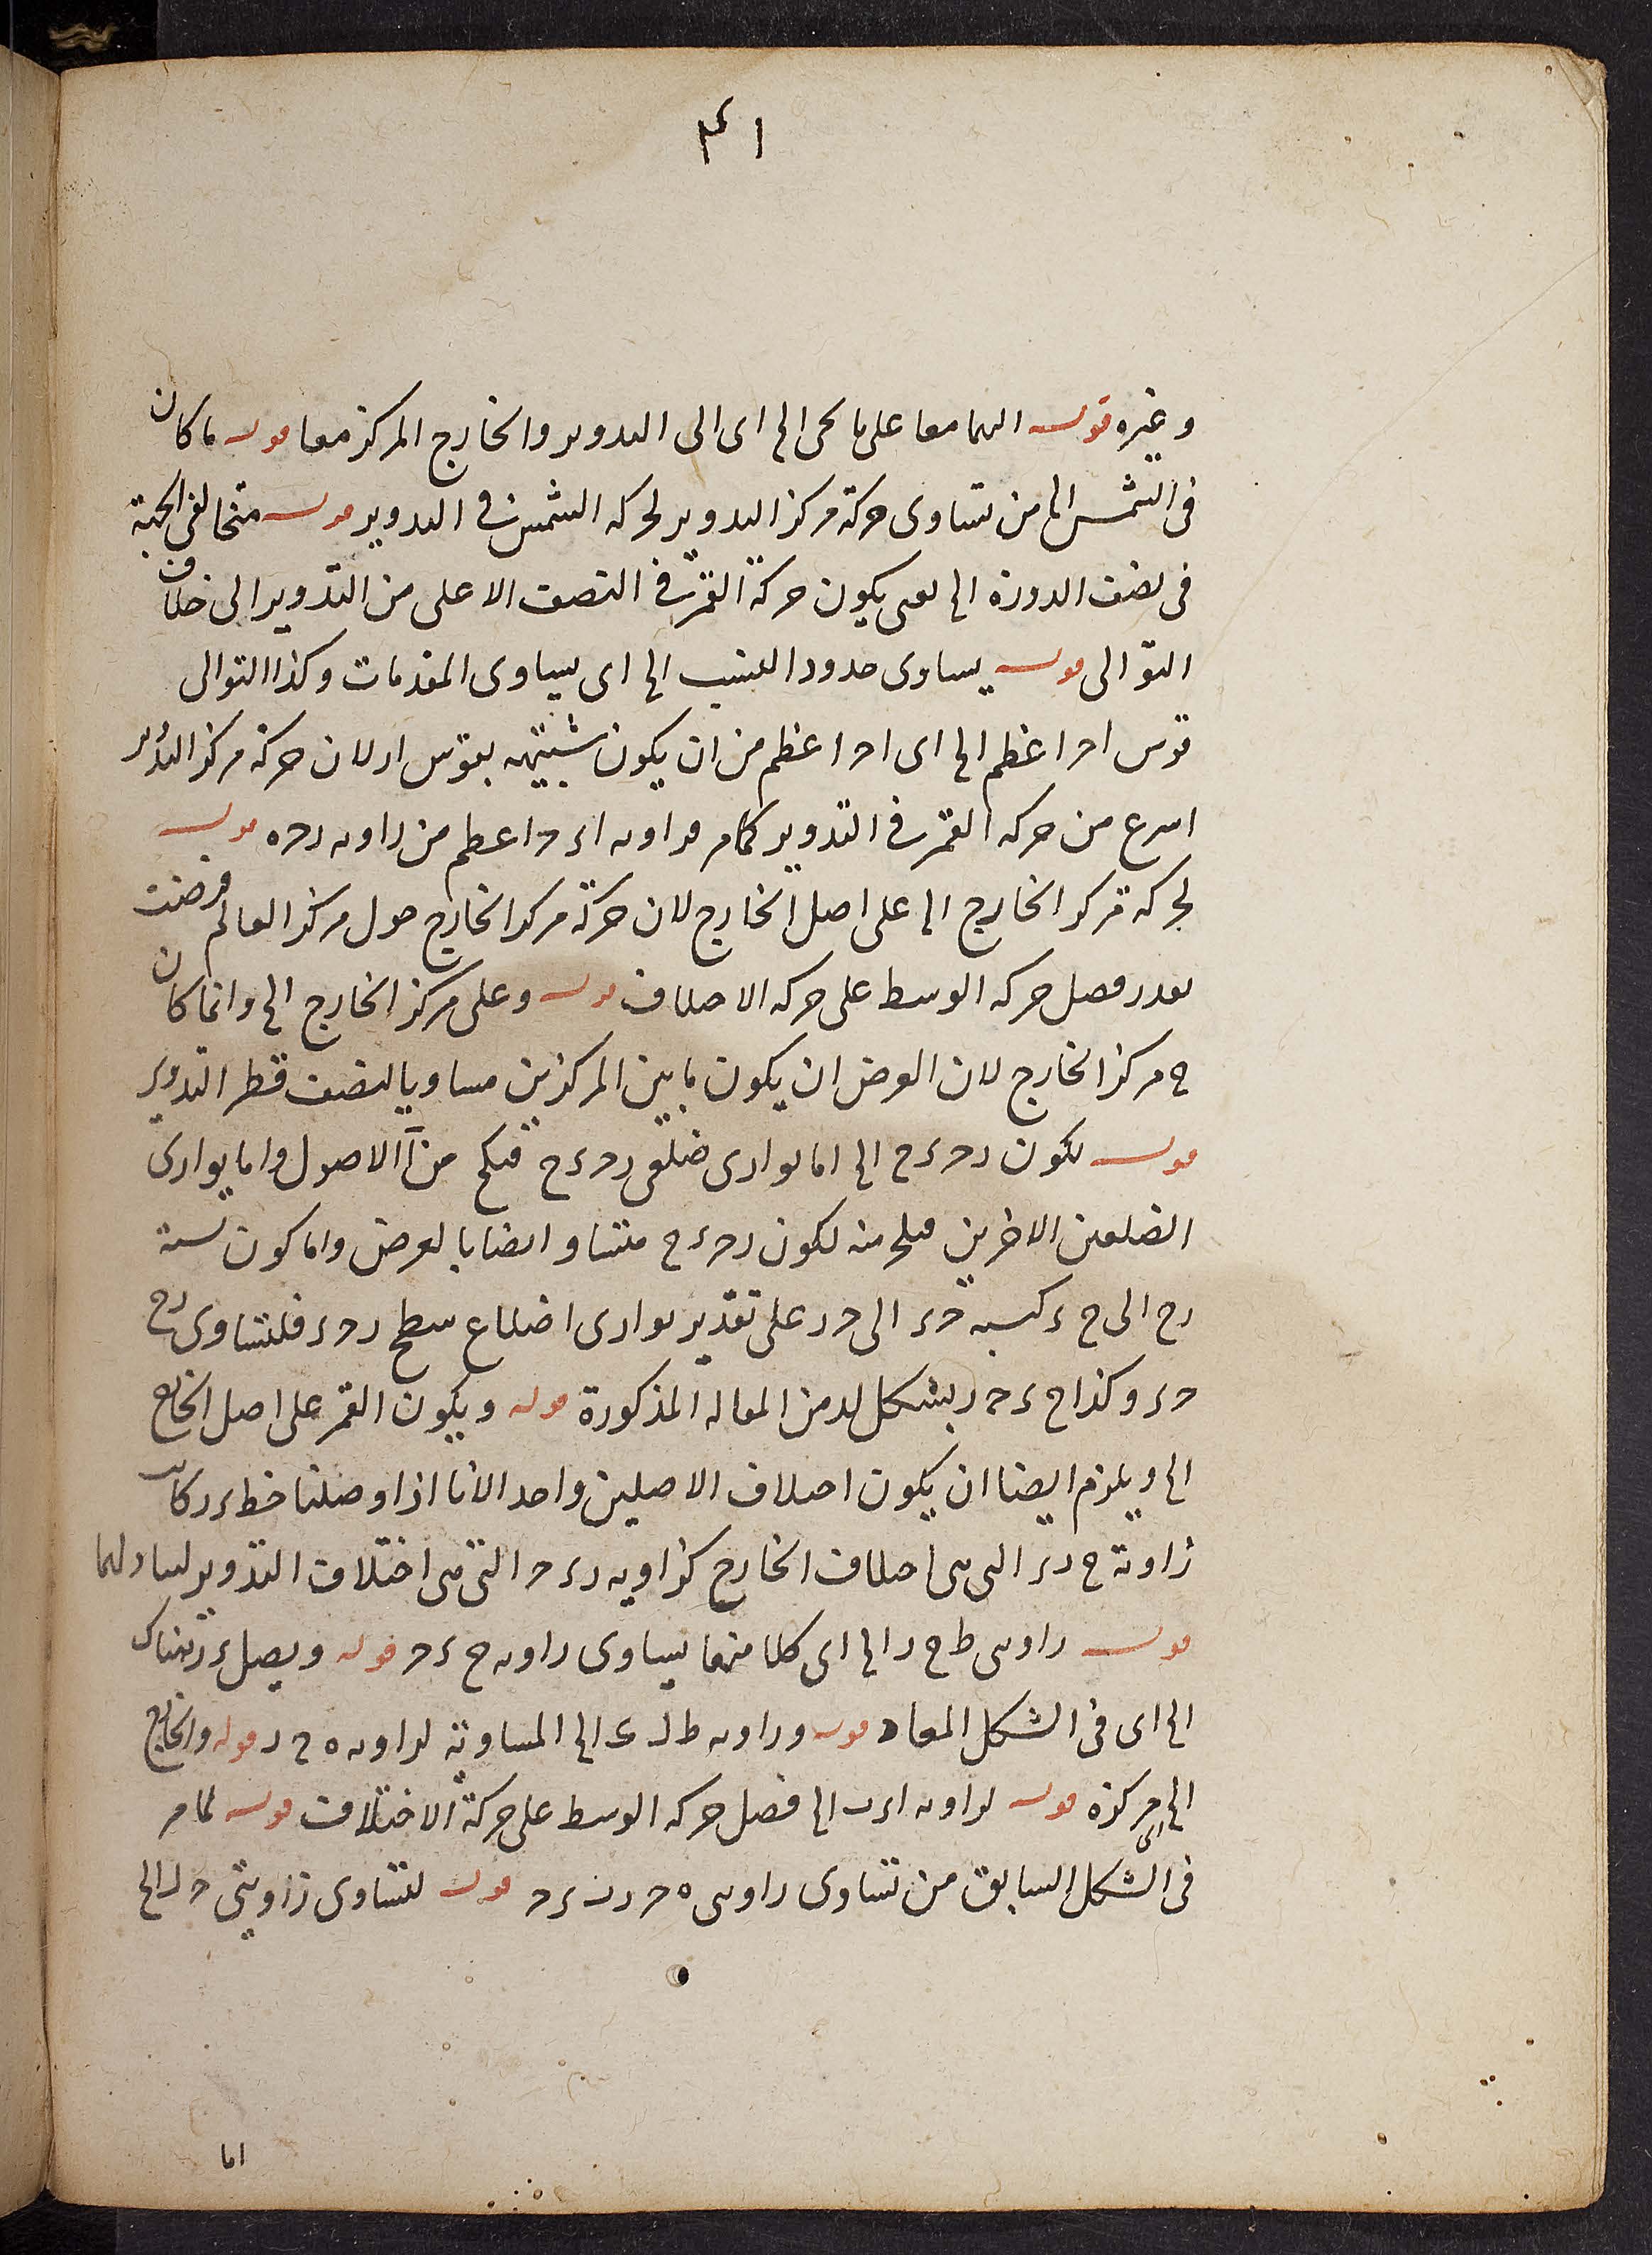 ١٣١
وغيره قوله اليهما معا على ما يحى الى اى الى التدوير والخارج المركز معا قوله ما كان
فى الشمس الى من تساوى حركة مركز التدوير لحركه الشمس فى التدوير قوله متخالفى الجهة
فى نصف الدورة الى يعنى يكون حركة القمر فى النصف الاعلى من التدوير الى خلاف
التوالى قوله يساوى حدود النسب الى اى يساوى المقدمات وكذا التوالى
قوس احر اعظم الى اى احر اعظم من ان يكون شبيهه بقوس ار لان حركة مركز التدوير
اسرع من حركه القمر فى التدوير كما مر فزاويه اءح اعظم من زاويه رحه قوله
لحركة مركز الخارج الى على اصل الخارج لان حركة مركز الخارج حول مركز العالم فرضت
بقدر فضل حركه الوسط على حركه الاختلاف قوله وعلى مركز الخارج الى وانما كان
ح مركز الخارج لان الفرض ان يكون ما بين المركزين مساويا لنصف قطر التدوير
قوله لكون رح ءح الى اما توازى ضلعى رح ءح فبكح من آ الاصول واما توازى
الضلعين الاخرين فبلح منه لكون رح ءح متساو ايضا بالفرض واما كون نسبة
رح الى ح ء كنسبه حء الى حر على تقدير توازى اضلاع سطح رحء فلتساوى رح
حء وكذا ح ء حر بشكل لد من المقاله المذكورة قوله ويكون القمر على اصل الخارج
الى ويلزم ايضا ان يكون اختلاف الاصلين واحد الانا اذا وصلنا خط ءر كانت
زاوية ح رء التى هى اختلاف الخارج كزاويه رء ح التى هى اختلاف التدوير لتبادلهما
قوله زاويتى ط ح ر الى اى كلا منهما يساوى زاويه ح ءح قوله ويصل ءر هناك
الى اى فى الشكل المعاد قوله وزاويه ط ل ى الى المساوية لزاويه ه ح ر قوله والخارج
الى اى مركزه قوله لزاويه اءب الى فضل حركه الوسط على حركة الاختلاف قوله لما مر
فى الشكل السابق من تساوى زاويتى ه ح ر ب ءح قوله لتساوى زاويتى ح ل الى
اما